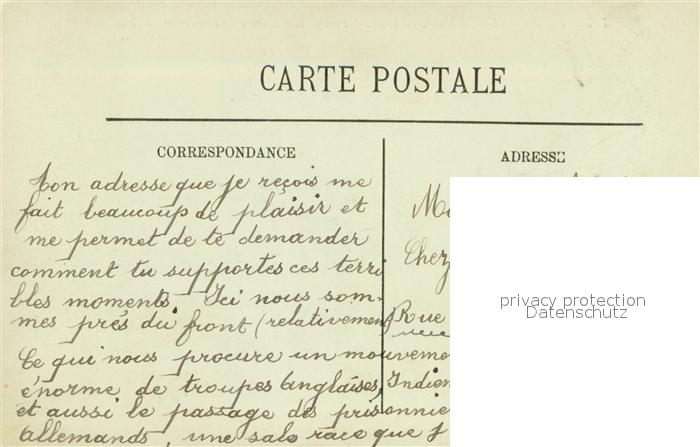 CARTE POSTALE
CORRESPONDANCE
ADRESSE
Ton adresse que je reçois me
fait beaucoup de plaisir et
me permet de te demander
comment tu supportes ces terri
bles moments. Ici nous som-
mes près du front (relativement)
Ce qui nous procure un mouveme
énorme de troupes Anglaises, Indien
et aussi le passage des prisonnie
Allemands, une sale race que j
Cherz
Rue
privacy protection
Datenschutz